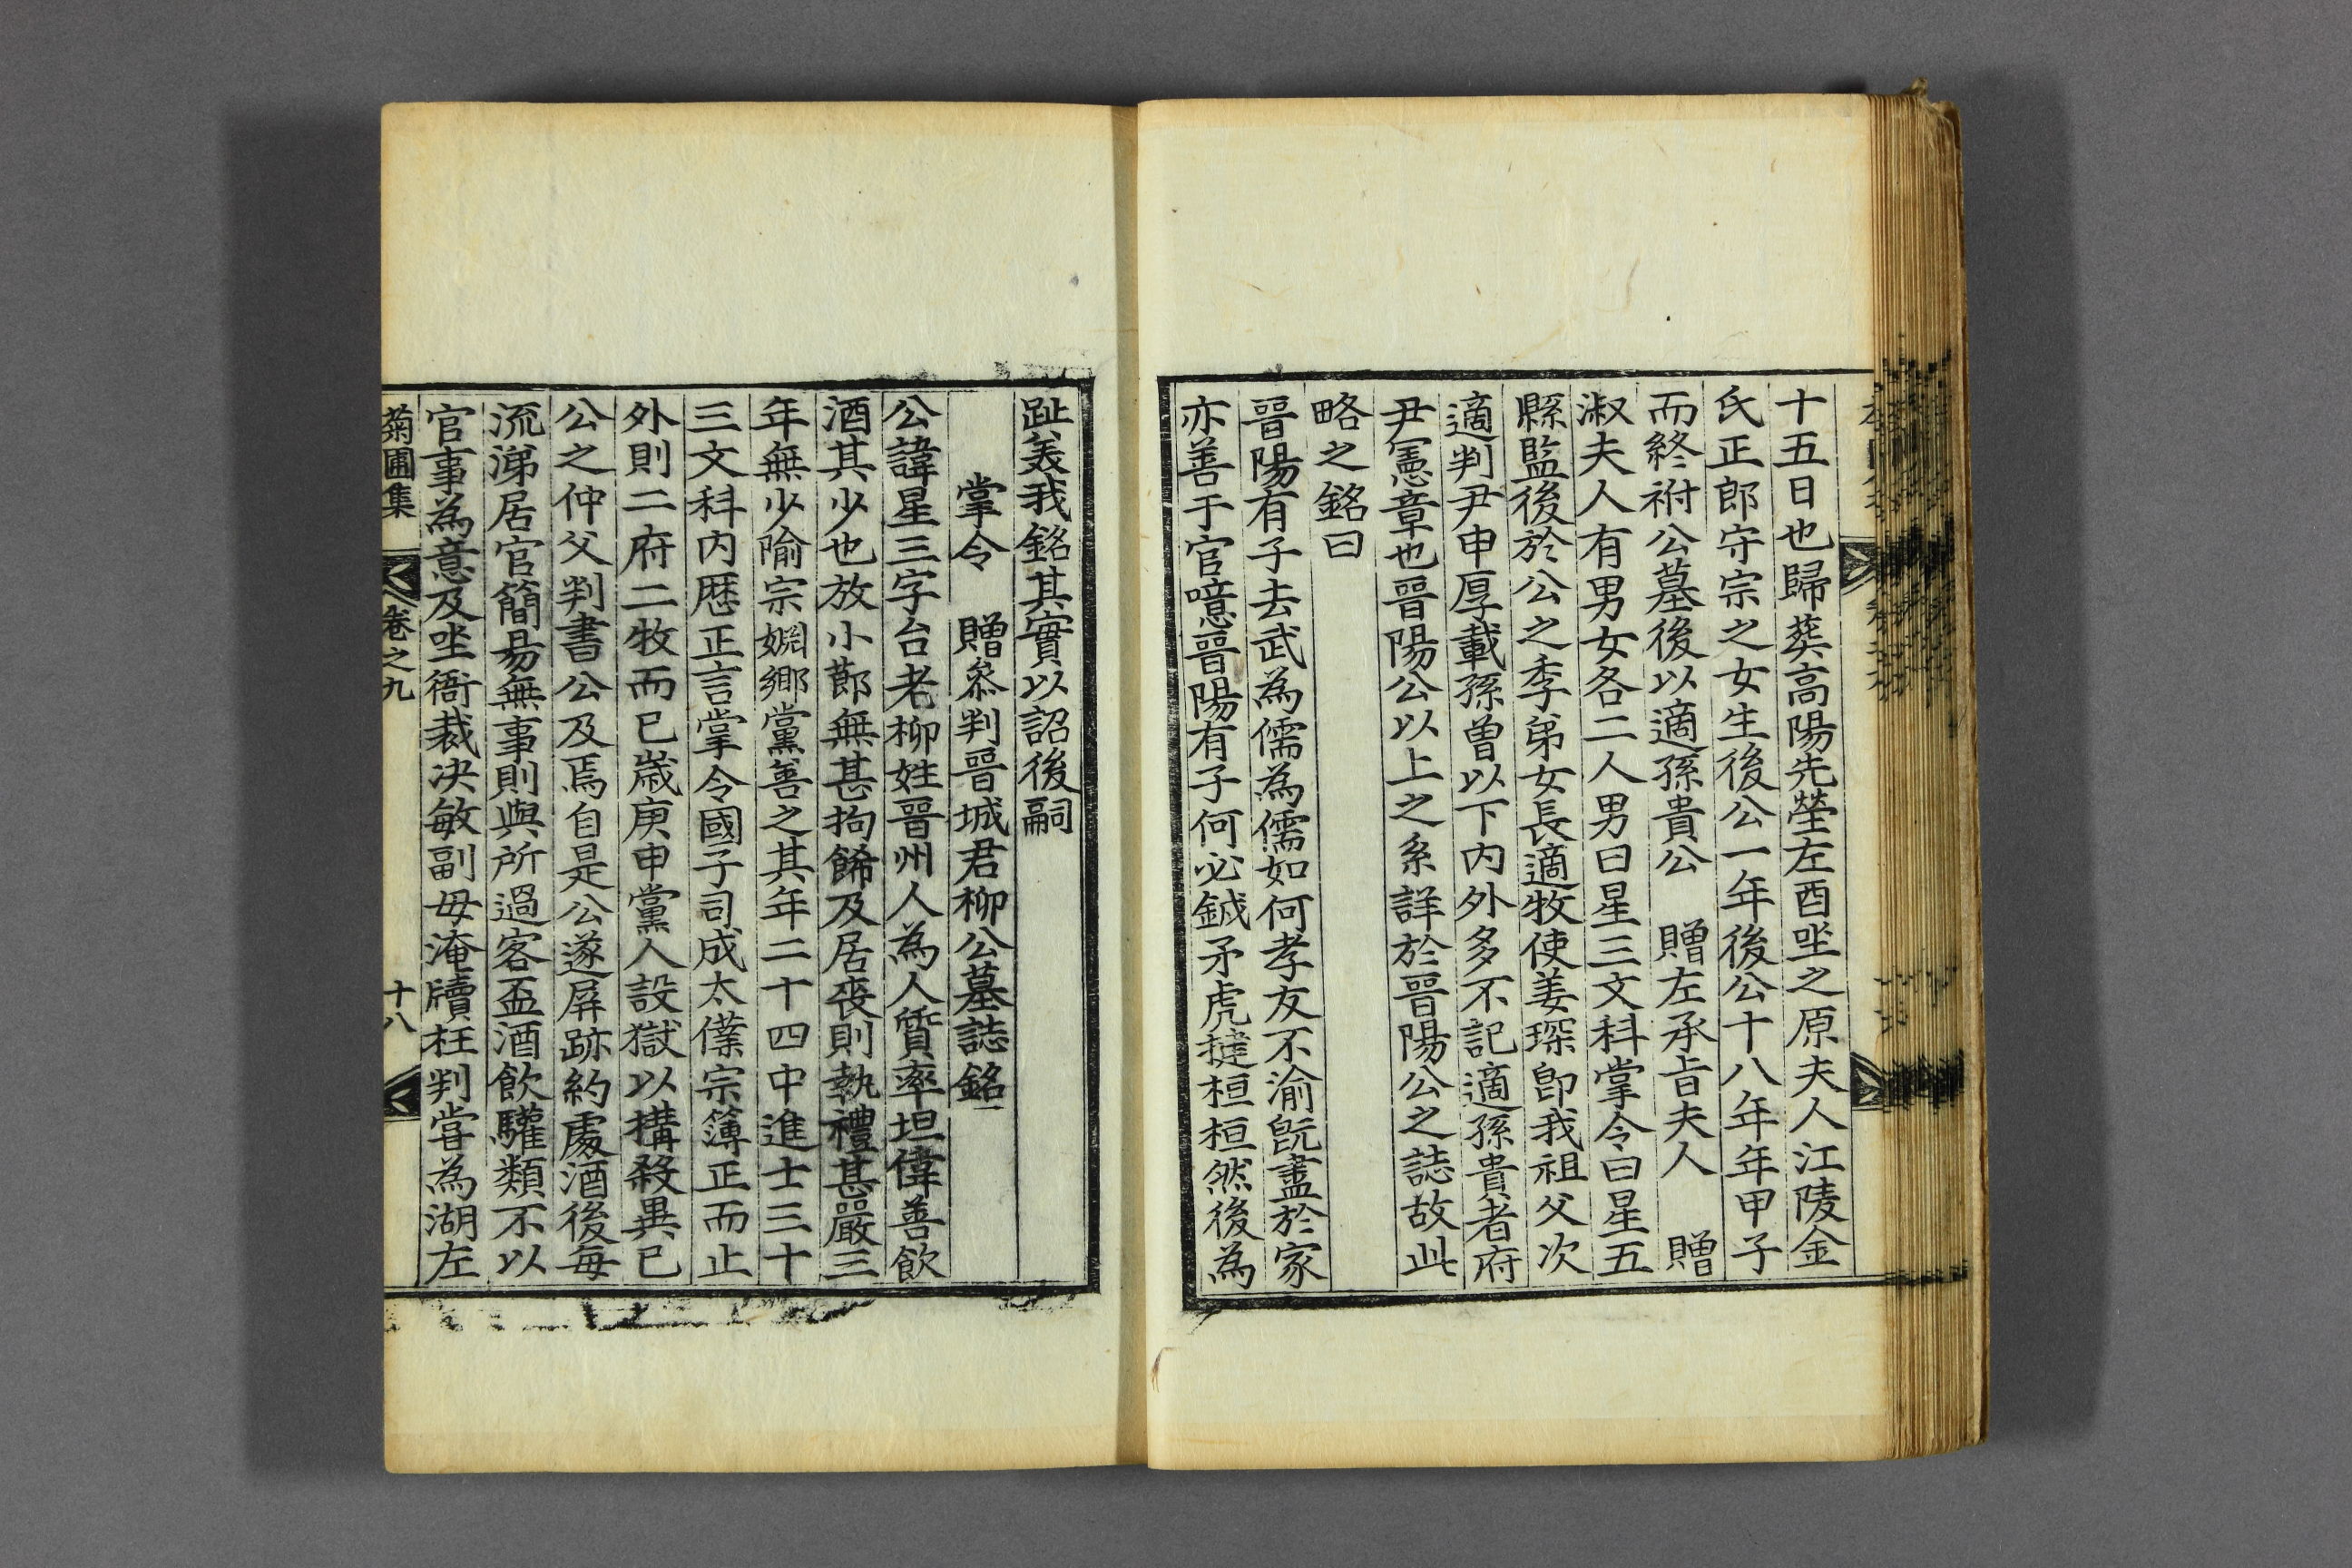 十五日也歸葬高陽先塋左酉坐之原夫人江陵金
氏正郎守宗之女生後公一年後公十八年年甲子
而終祔公墓後以適孫貴公 贈左承旨夫人 贈
淑夫人有男女各二人男曰星三文科掌令曰星五
縣監後於公之季弟女長適牧使姜琛卽我祖父次
適判尹申厚載孫曾以下內外多不記適孫貴者府
尹憲章也晉陽公以上之系詳於晉陽公之誌故此
略之銘曰
晉陽有子去武為儒為儒如何孝友不渝旣盡於家
亦善于官噫晉陽有子何必鉞矛虎㨗桓桓然後為
趾美我銘其實以詔後嗣
掌令 贈叅判晉城君柳公墓誌銘
公諱星三字台老柳姓晉州人為人質率坦偉善飮
酒其少也放小節無甚拘餙及居喪則執禮甚嚴三
年無少隃宗婣鄉黨善之其年二十四中進士三十
三文科內歷正言掌令國子司成太僕宗簿正而止
外則二府二牧而已歲庚申黨人設獄以搆殺異己
公之仲父判書公及焉自是公遂屏跡約處酒後每
流涕居官簡易無事則與所過客盃酒飮驩類不以
官事為意及坐衙裁决敏副毋淹牘枉判嘗為湖左
菊圃集 卷之九 十八